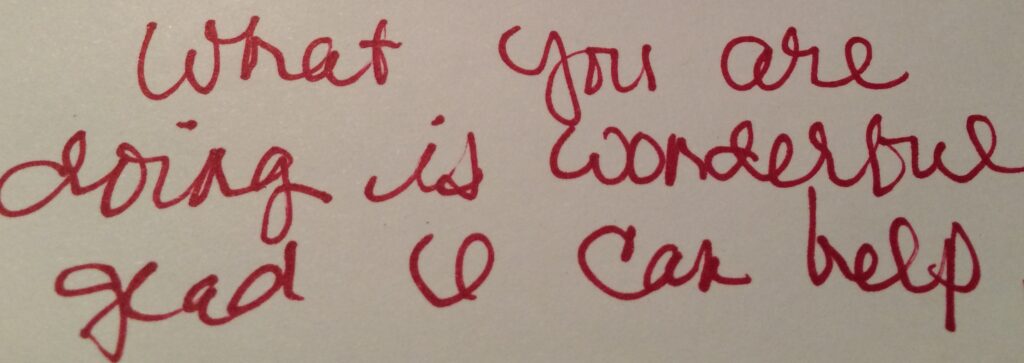 What you are
doing is wonderful
glad I can help.